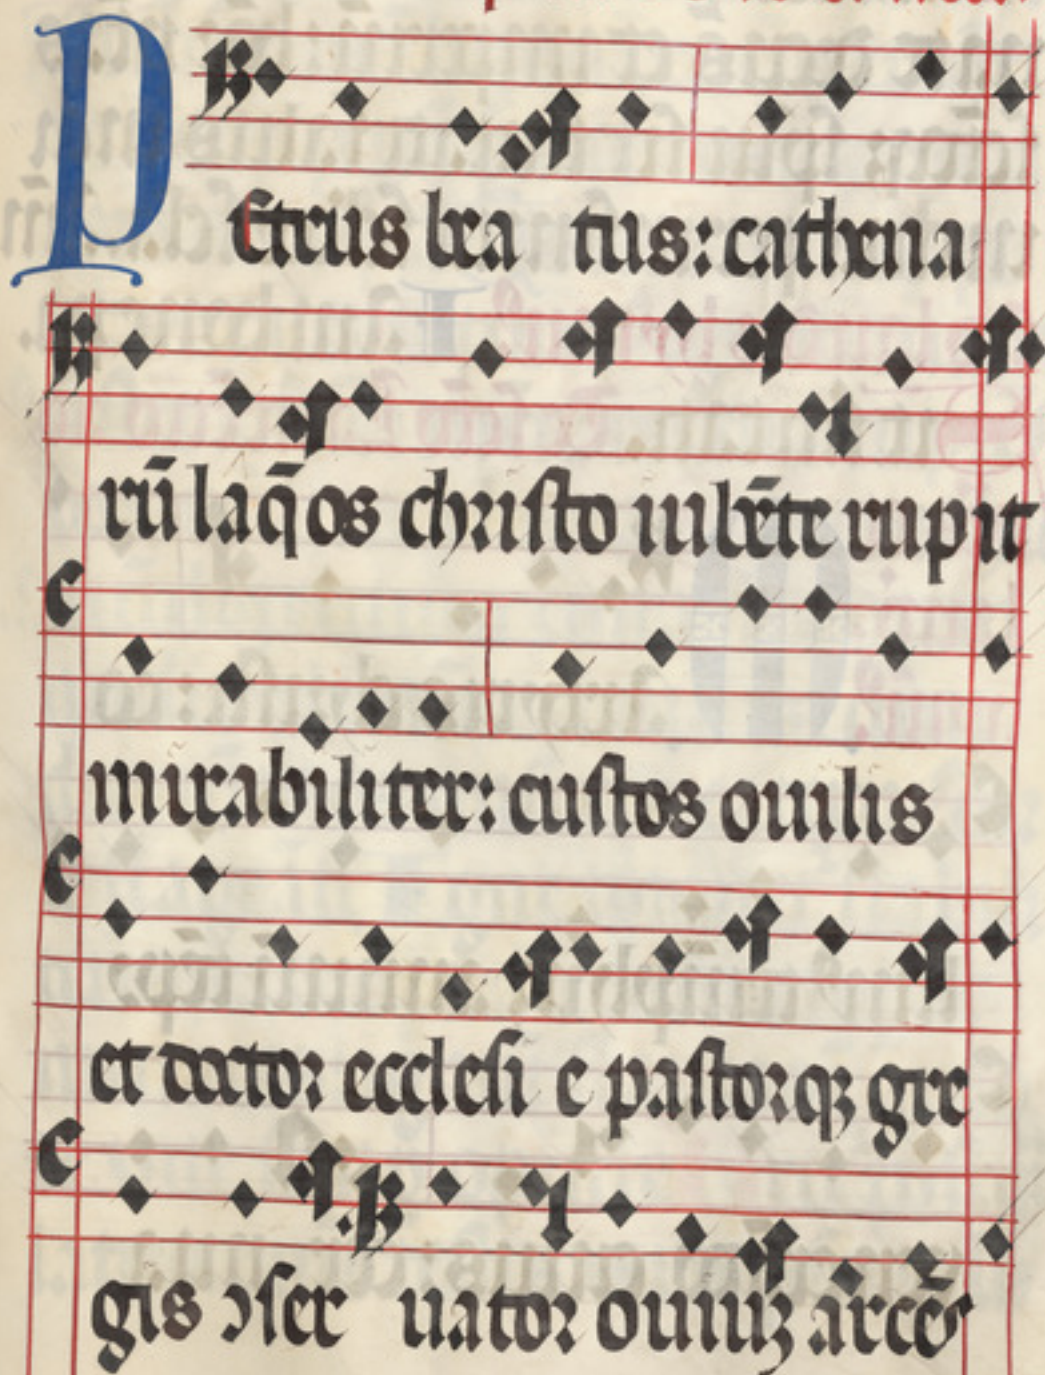 PEtrus bea tus: cathena
rū laq̄os christo iubēte rupit
mirabiliter: custos ouilis
et doctor ecclesi e pastorqꝫ gre
gis ↄser uator ouiuꝫ arcēs